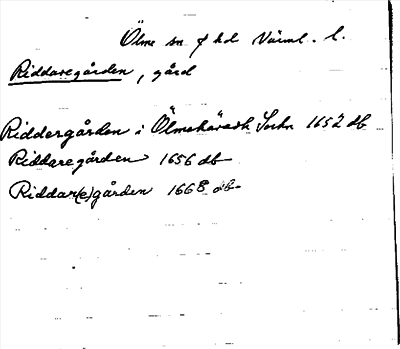 Ölme sn f hd Värml. l.
Riddaregården, gård
Riddergården i Ölmehäradh Sochn 1652 db
Riddaregården 1656 db
Riddar(e)gården 1668 db